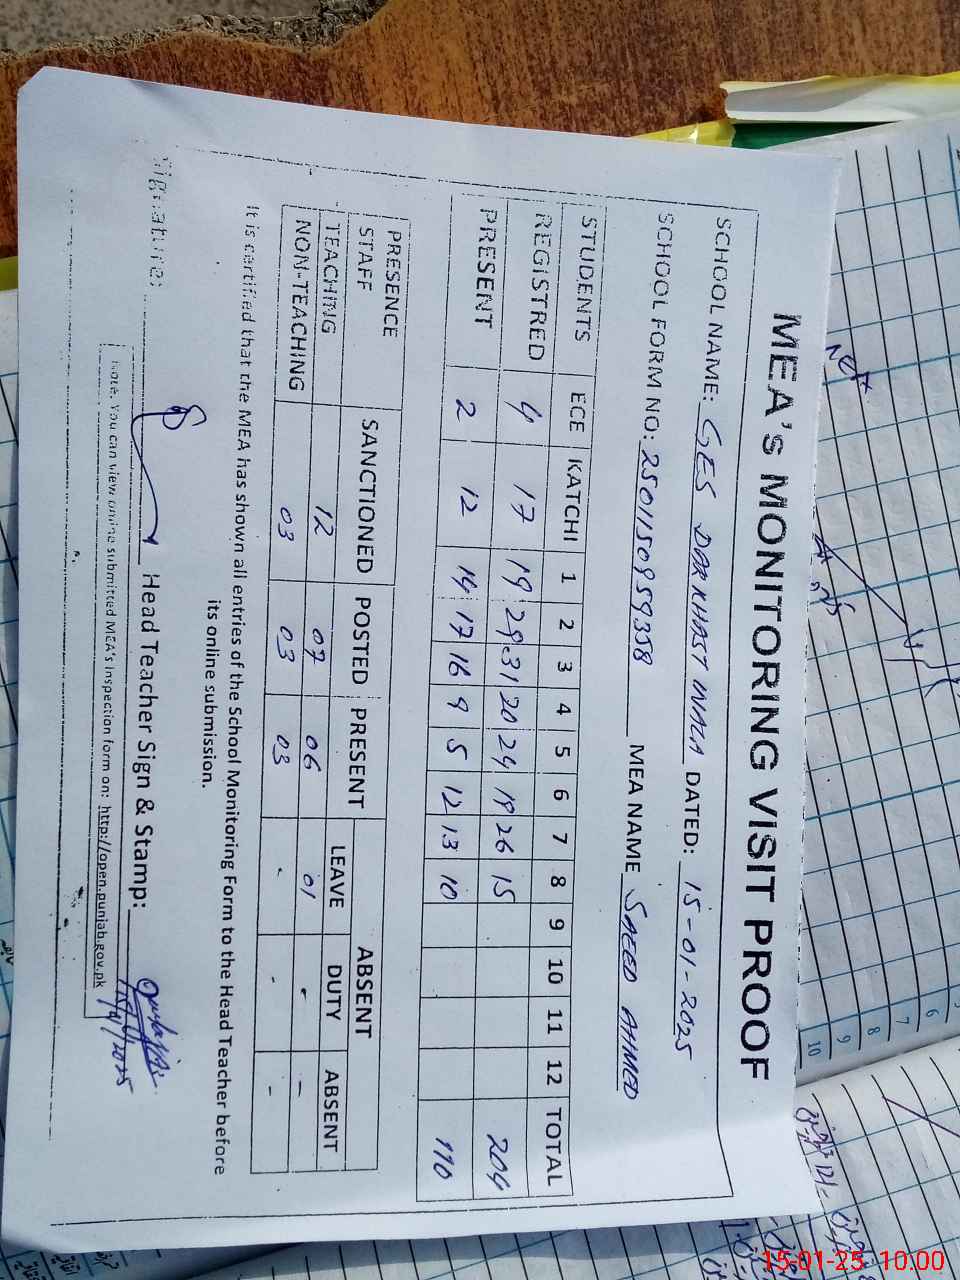 MEA's MONITORING VISIT PROOF
SCHOOL NAME: GES DARKHAST WALA DATED: 15-01-2025
SCHOOL FORM NO: 25011509559358 MEA NAME SAEED AHMED
STUDENTS ECE KATCHI 1 2 3 4 5 6 7 8 9 10 11 12 TOTAL
REGISTRED 4 17 19 29 31 20 24 19 26 15 204
PRESENT 2 12 14 17 16 9 5 12 13 10 110
PRESENCE STAFF SANCTIONED POSTED PRESENT ABSENT
LEAVE DUTY ABSENT
TEACHING 12 07 06 01 - -
NON-TEACHING 03 03 03 - - -
It is certified that the MEA has shown all entries of the School Monitoring Form to the Head Teacher before
its online submission.
Signature: Head Teacher Sign & Stamp:
Note: You can view online submitted MEA's inspection form on: http://open.punjab.gov.pk
Next
6
7
8
9
10
15-01-25 10.00